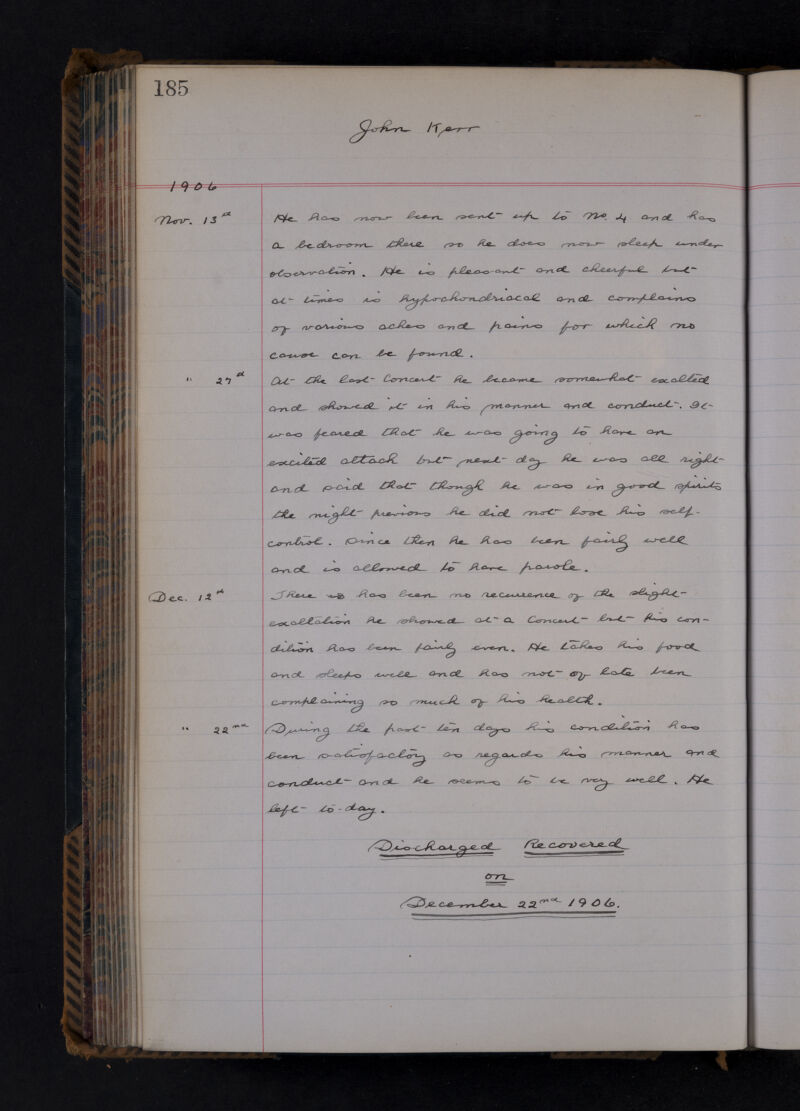 185
John Kerr
1906
Nov. 13th He has now been sent up to No. 4 and has
a bedroom there so he does now sleep under
observation. He is pleasant and cheerful but
at times is hypochondriacal and complains
of various aches and pains for which no
cause can be found.
" 27th At the last Concert he became somewhat exalted
and showed it in his manner and conduct. It
was feared that he was going to have an
excited attack but next day he was all right
and said that though he was in good spirits
the night previous he did not lose his self-
control. Since then he has been fairly well
and is allowed to have parole.
Dec. 12th There has been no recurrence of the slight
exaltation he showed at a Concert but his con-
dition has been fairly even. He takes his food
and sleeps well and has not of late been
complaining so much of his health.
" 22nd During the past ten days his condition has
been satisfactory as regards his manner and
conduct and he seems to be very well. He
left to-day.
Discharged Recovered
on
December 22nd 1906.